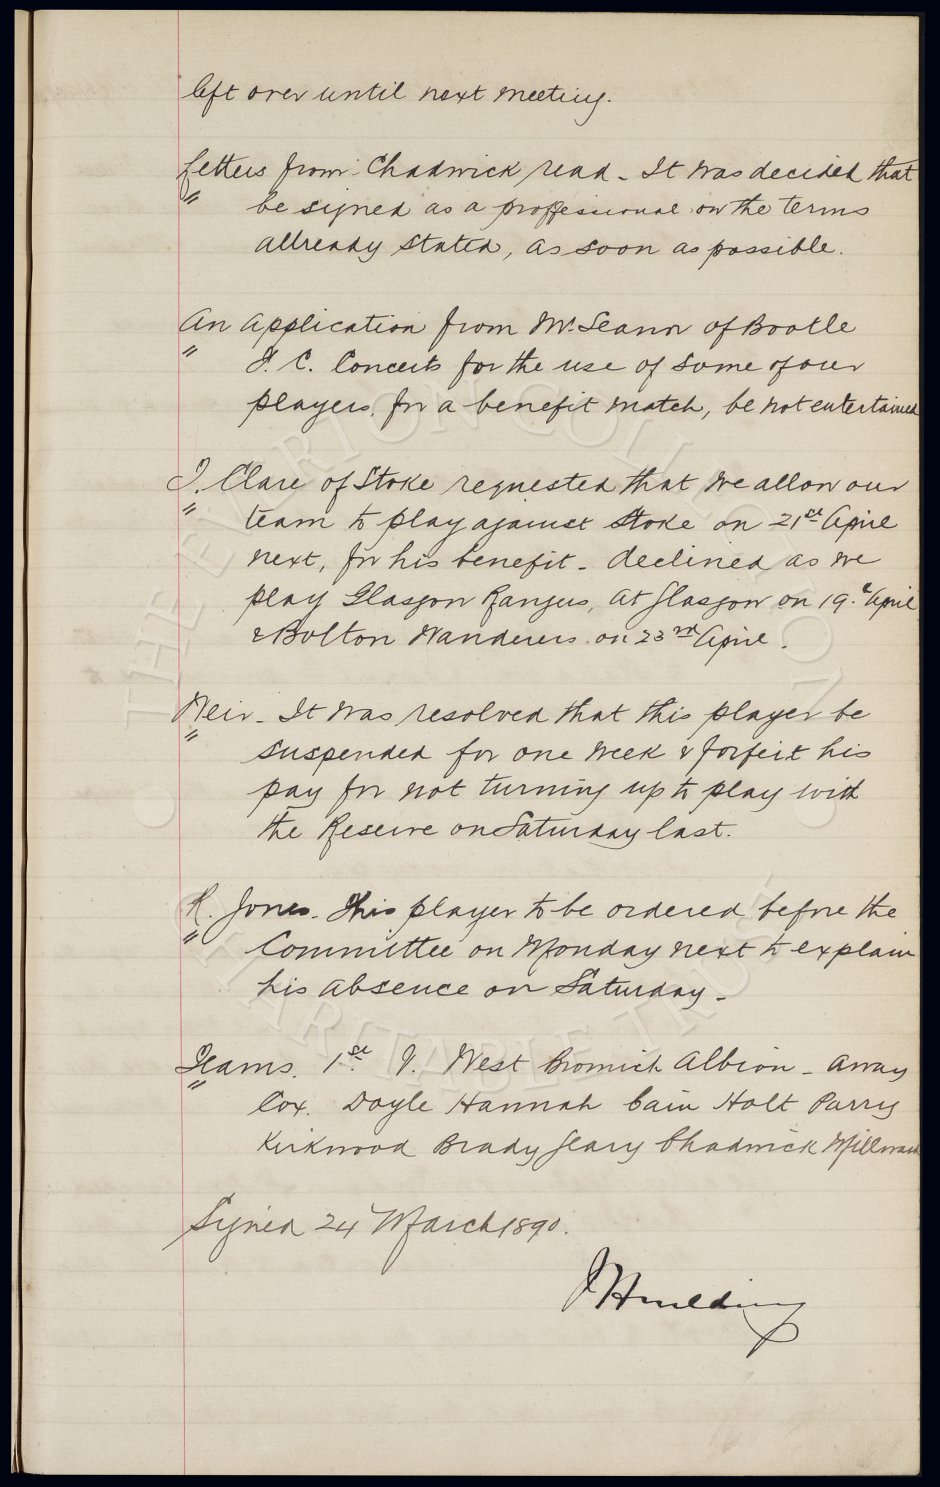 left over until next meeting.
Letters from Chadwick read - It was decided that
" be signed as a proffessional on the terms
allready stated, as soon as possible.
An application from Mr. of Bootle
" F. C. Concerts for the use of some of our
players, for a benefit match, be not entertained
T. Clare of Stoke requested that we allow our
" team to play against Stoke on 21st April
next, for his benefit - declined as we
play Glasgow Rangers, at Glasgow on 19th April
& Bolton Wanderers on 23rd April.
Weir - It was resolved that this player be
" suspended for one week & forfeit his
pay for not turning up to play with
the Reserve on Saturday last.
R. Jones. This player to be ordered before the
" Committee on Monday next to explain
his absence on Saturday -
Teams. 1st V. West Bromich Albion - away
" Cox. Doyle Hannah Cain Holt Parry
Kirkwood Brady Geary Chadwick Millward
Signed 24 March 1890.
J Houlding
THE EVERTON COLLECTION
CHARITABLE TRUST